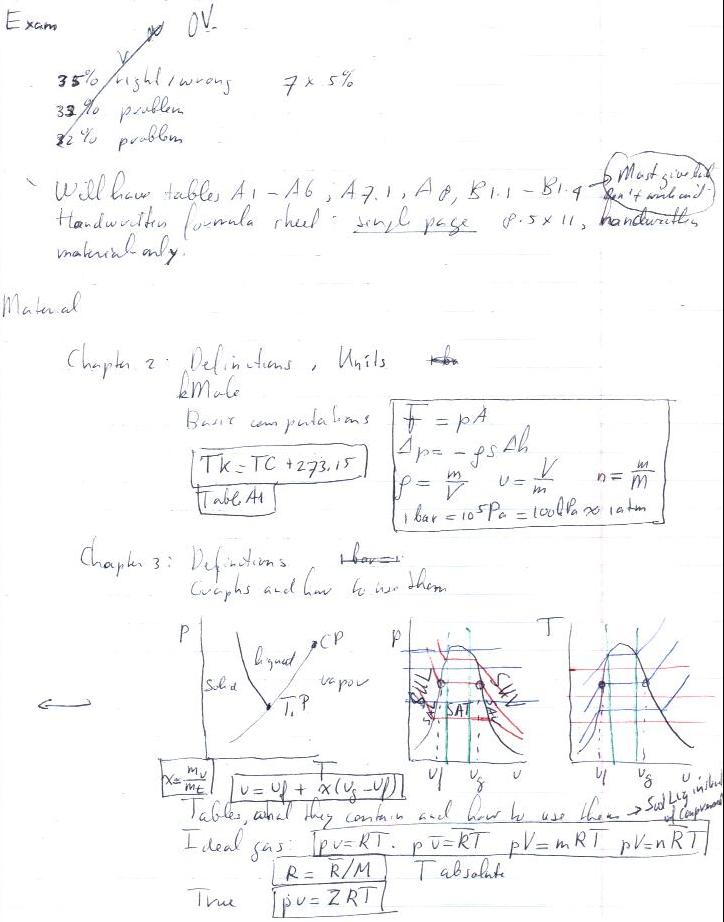 Exam OV.
35% right/wrong 7 x 5%
33% problem
32% problem
Will have tables A1 - A6, A7.1, A8, B1.1 - B1.4 → Must give
Handwritten formula sheet: single page 8.5 x 11, handwritten
material only.
Material
Chapter 2: Definitions, Units
kMole
Basic computations
TK = TC + 273.15
Table A1
F = pA
Δp = - ρgΔh
ρ = m/V v = V/m n = m/M
1 bar = 10⁵Pa = 100kPa ≈ 1 atm
Chapter 3: Definitions 1 bar = 1
Graphs and how to use them
P Solid liquid vapor CP T.P T
P SAT vf vg v
T vf vg v
x = mv/mt v = vf + x(vg - vf)
Tables, what they contain and how to use them → Sat Liq instead of
Ideal gas: pv = RT. pv̄ = R̄T pV = mRT pV = nR̄T
R = R̄/M T absolute
True pv = ZRT